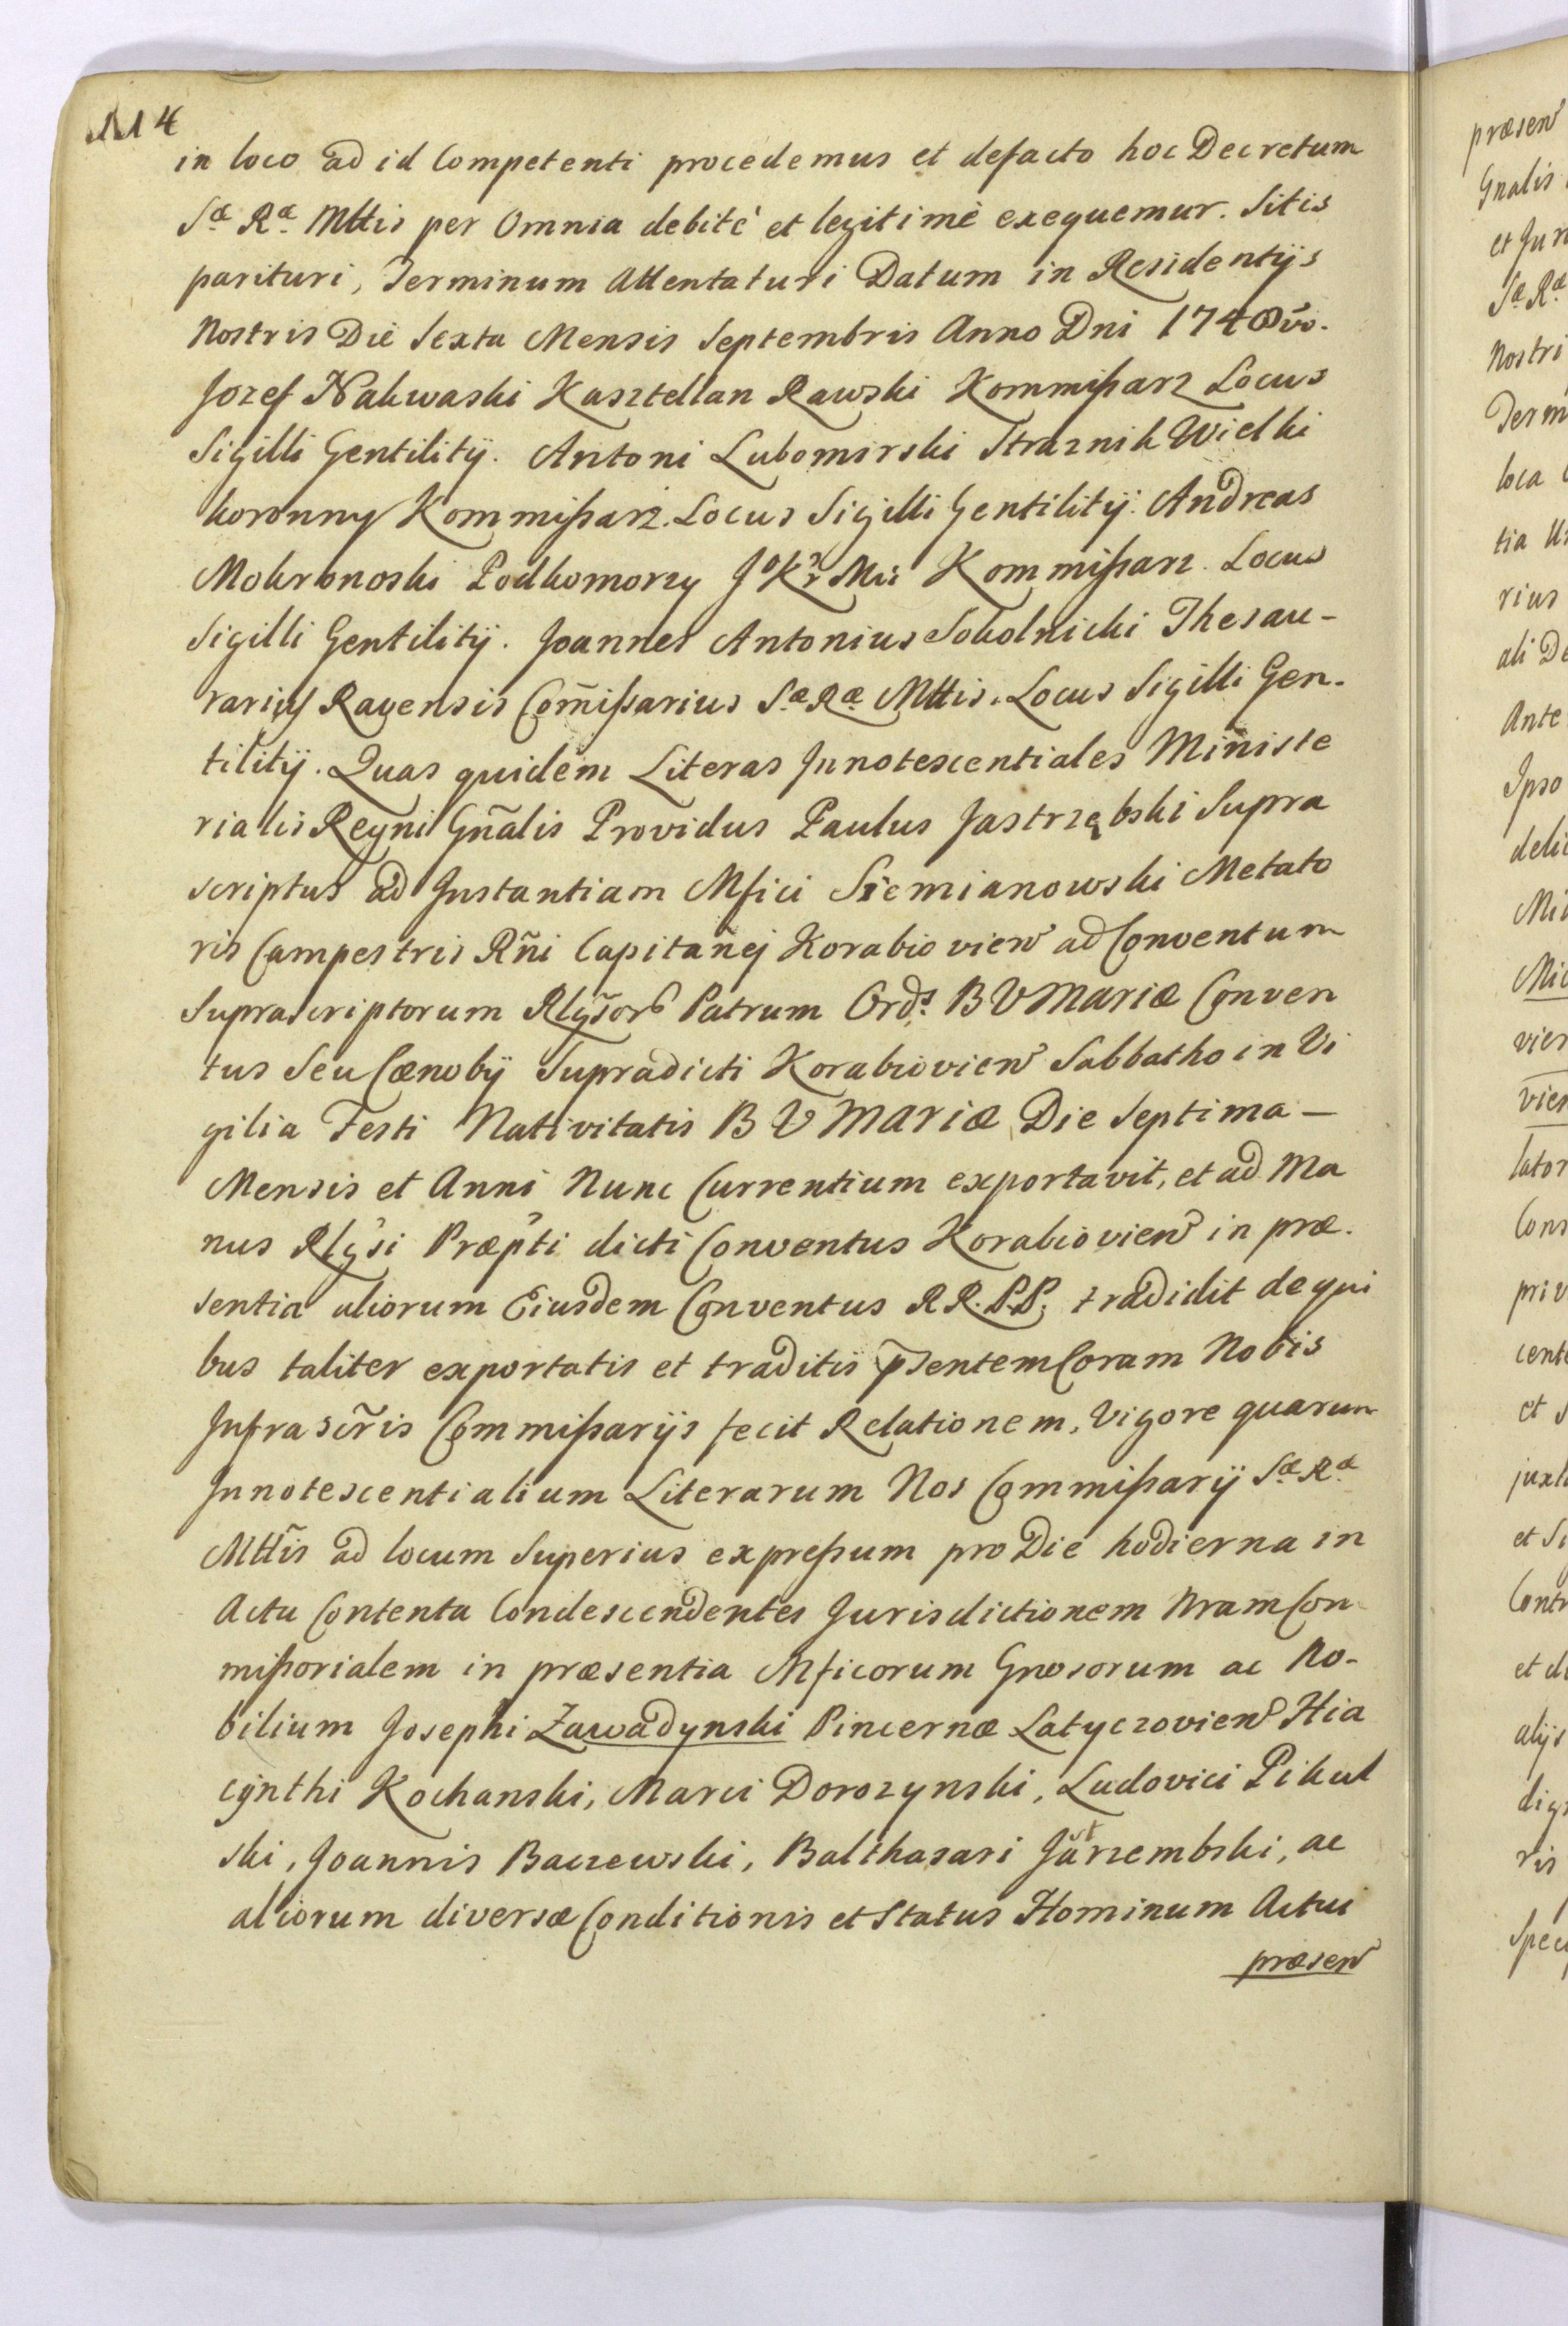 114
in loco ad id Competenti procedemus et defacto hoc Decretum
Sæ Ræ Mttis per Omnia debitè et legitimè exequemur. Sitis
parituri, Terminum Attentaturi Datum in Residentijs
Nostris Die Sexta Mensis Septembris Anno Dni 1748vo.
Jozef Nakwaski Kasztellan Rawski Kommißarz Locus
Sigilli Gentilitÿ. Antoni Lubomirski Straznik Wielki
koronny Kommißarz. Locus Sigilli Gentilitÿ. Andreas
Mokronoski Podkomorzy Kommißarz. Locus
Sigilli Gentilitÿ. Joannes Antonius Sokolnicki Thesau-
rarius Ravensis Com̃ißarius Sæ Ræ Mttis. Locus Sigilli Gen-
tilitÿ. Quas quidem Literas Innotescentiales Ministe
rialis Regni Gñalis Providus Paulus Jastrzębski Supra
scriptus ad Instantiam Mfici Siemianowski Metato
ris Campestris Rñi Capitañej Korabioview ad Conventum
Suprascriptorum Rlgsorũ Patrum Ords B V Mariæ Conven
tus Seu Cænobÿ Supradicti Korabioview Sabbatho in Vi
gilia Festi Nativitatis B V Mariæ Die Septima —
Mensis et Anni Nunc Currentium exportavit, et ad Ma
nus Rlgsi Præpti dicti Conventus Korabioview in præ-
sentia aliorum Eiusdem Conventus R R. P.P. tradidit de qui
bus taliter exportatis et traditis p̃sentem Coram Nobis
Infrascr̃is Commißarijs fecit Relationem, Vigore quarum
Innotescentialium Literarum Nos Commißarÿ Sæ Ræ
Mttis̃ ad locum Superius expreßum pro Die hodierna in
Actu Contenta Condescendentes Jurisdictionem Nram Con
mißorialem in præsentia Mficorum Gnosorum ac No-
bilium Josephi Zawadynski Pincernæ Latyczoview Hia
cÿnthi Kochanski, Marci Dorozynski, Ludovici Pikul
ski, Joannis Baczewski, Balthasari Jastrzembski, ac
aliorum diversæ Conditionis et Status Hominum Actui
præsen
præsen
Gnalis
et Jur
Sæ Ræ
Nostri
Term
loca
tia
rius
ali De
Ante
Ipso
deli
Mi
Mic
vier
vier
lator
Cons
priv
cent
et
juxt
et Si
Contr
et di
alijs
dig
ris
Spec